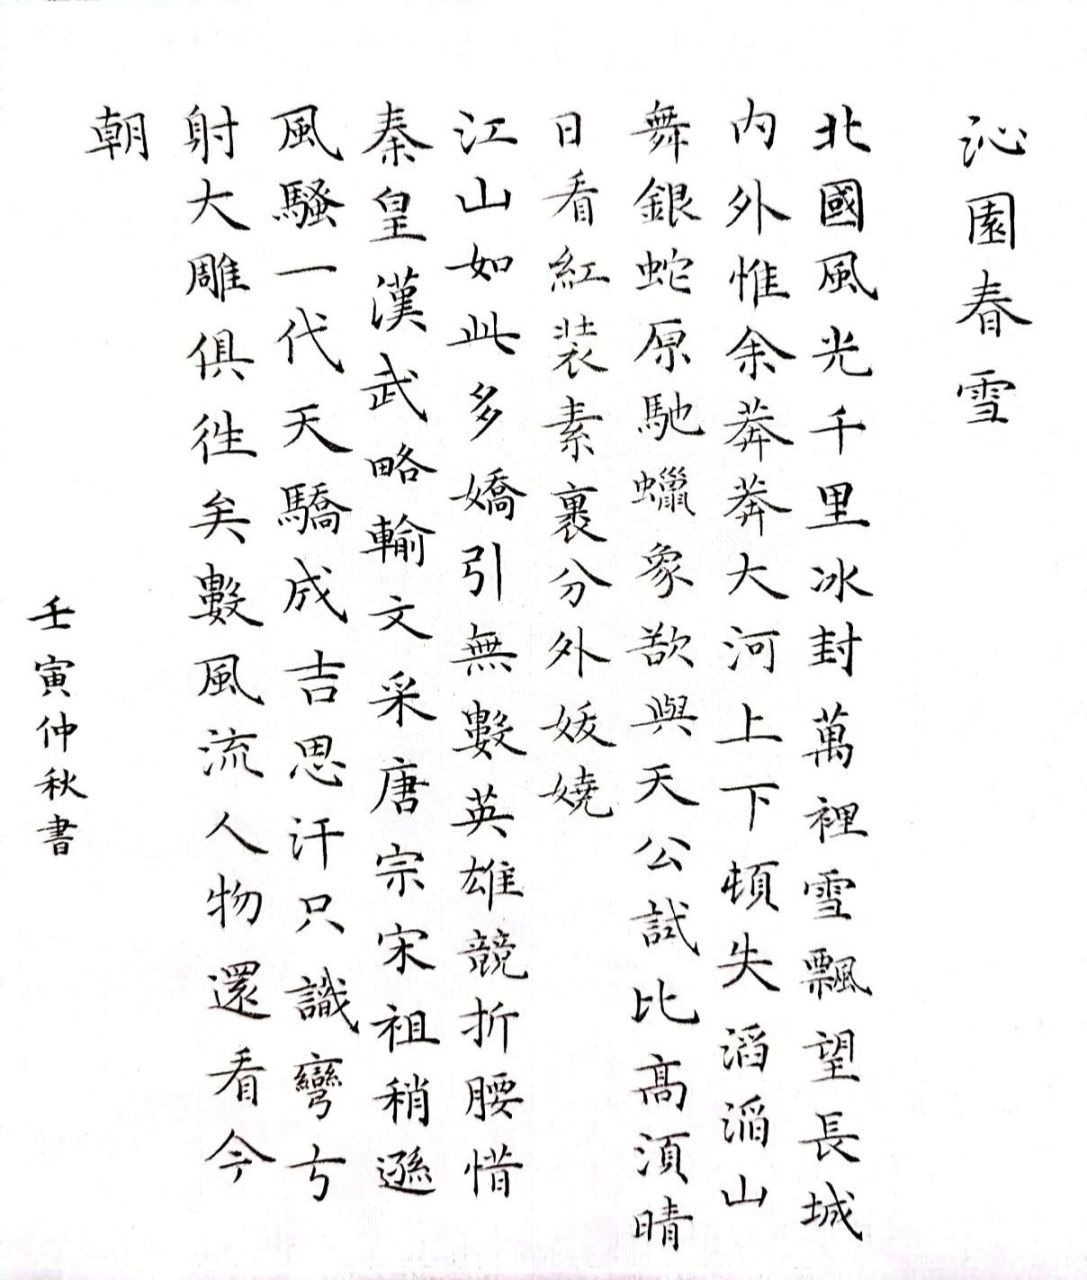 沁園春雪
北國風光千里冰封萬裡雪飄望長城
內外惟余莽莽大河上下頓失滔滔山
舞銀蛇原馳蠟象欲與天公試比高須晴
日看紅裝素裹分外妖嬈
江山如此多嬌引無數英雄競折腰惜
秦皇漢武略輸文采唐宗宋祖稍遜
風騷一代天驕成吉思汗只識彎弓
射大雕俱往矣數風流人物還看今
朝
壬寅仲秋書